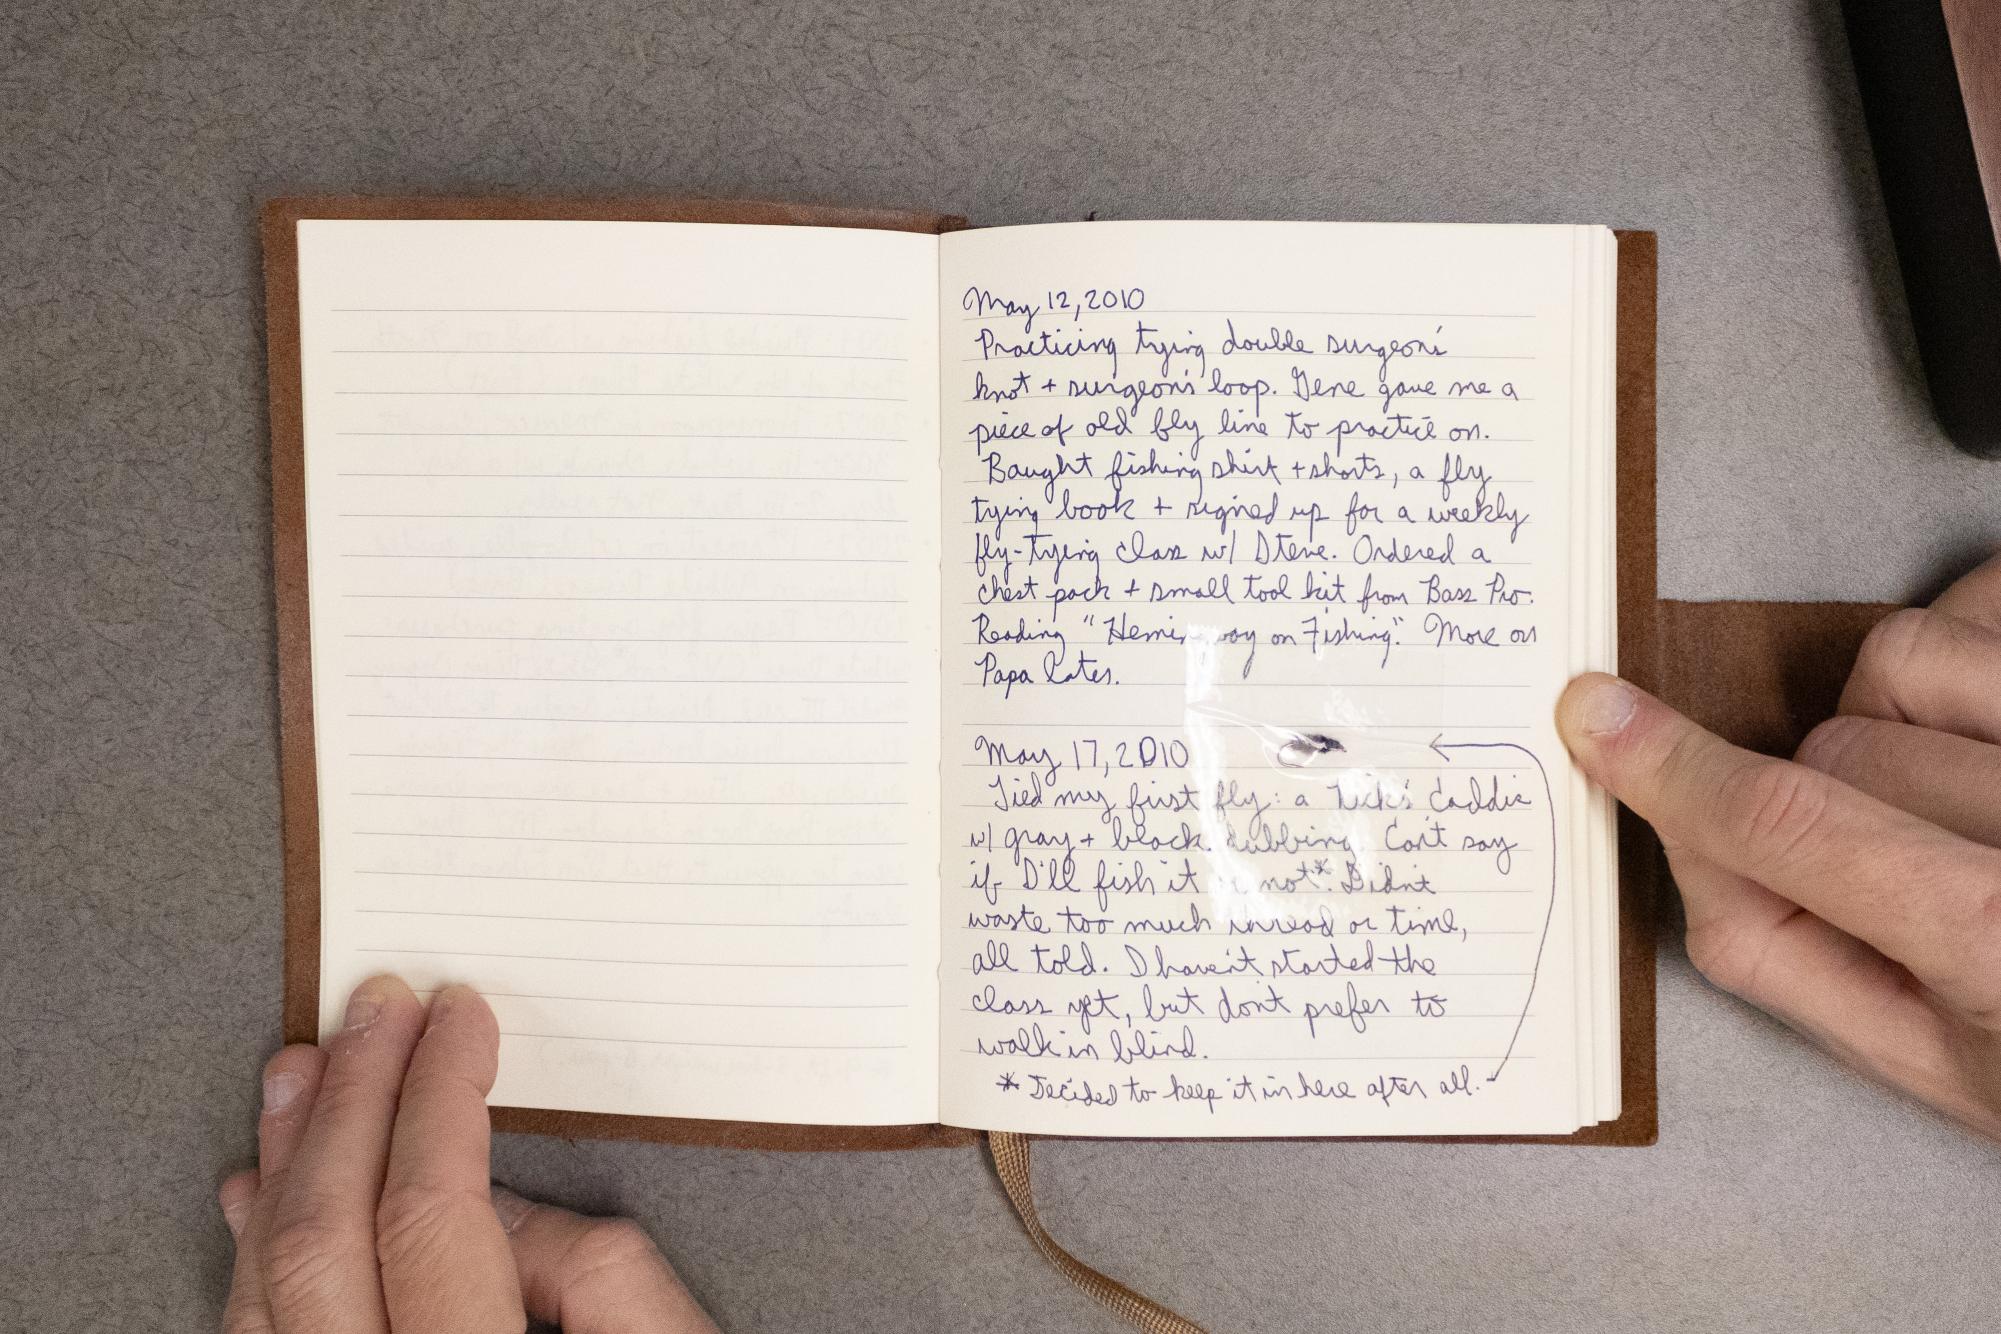 May 12, 2010
Practicing trying double surgeon's
knot + surgeon's loop. Gene gave me a
piece of old fly line to practice on.
Baught fishing shirt + shorts, a fly
tying book + signed up for a weekly
fly-tying class w/ Steve. Ordered a
chest pack + small tool kit from Bass Pro.
Reading "Hemingway on Fishing." More on
Papa later.
May 17, 2010
Tied my first fly: a Caddis
w/ gray + black dubbing. Can't say
if I'll fish it or not*. Didn't
waste too much thread or time,
all told. I haven't started the
class yet, but don't prefer to
walk in blind.
* Decided to keep it in here after all.